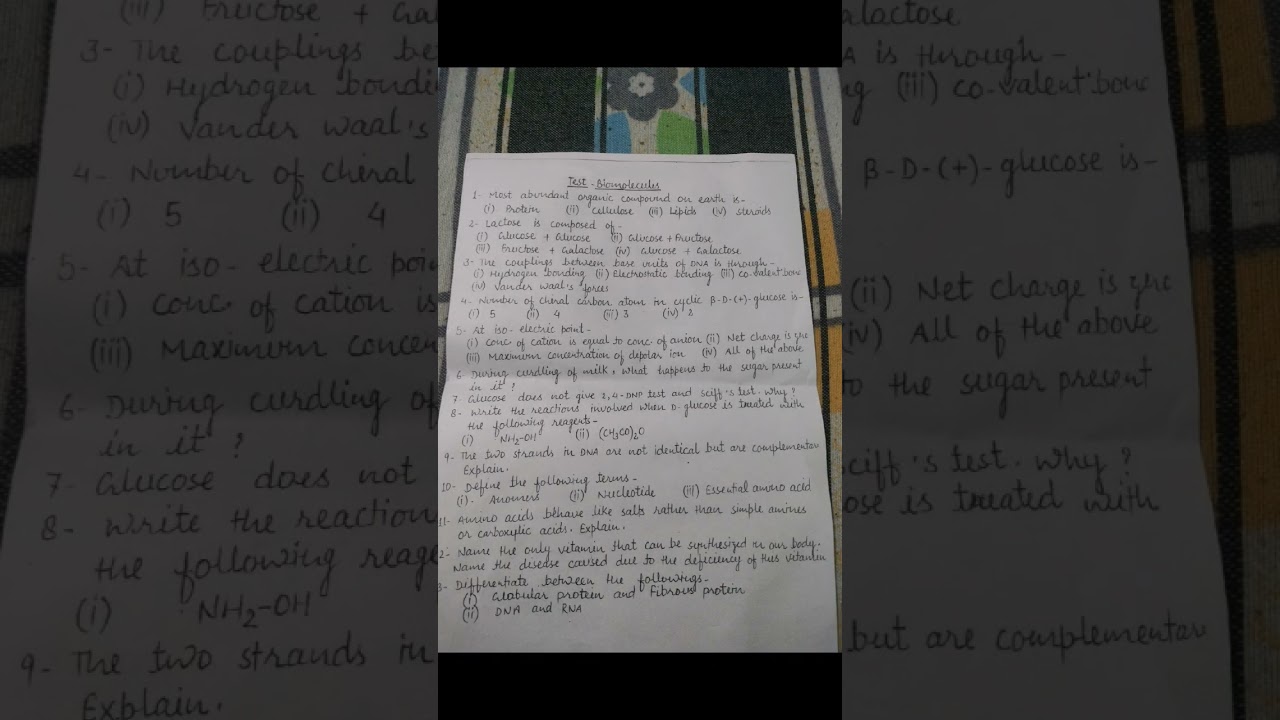 Test - Biomolecules
1- Most abundant organic compound on earth is-
(i) Protein (ii) Cellulose (iii) Lipids (iv) steroids
2- Lactose is composed of -
(i) Glucose + Glucose (ii) Glucose + Fructose
(iii) Fructose + Galactose (iv) Glucose + Galactose
3- The couplings between base units of DNA is through-
(i) Hydrogen bonding (ii) Electrostatic bonding (iii) co-valent bond
(iv) Vander Waal's forces
4- Number of chiral carbon atom in cyclic β-D-(+)-glucose is-
(i) 5 (ii) 4 (iii) 3 (iv) 2
5- At iso-electric point-
(i) Conc. of cation is equal to conc. of anion (ii) Net charge is zero
(iii) Maximum concentration of dipolar ion (iv) All of the above
6- During curdling of milk, what happens to the sugar present
in it ?
7- Glucose does not give 2,4-DNP test and sciff's test. Why ?
8- Write the reactions involved when D-glucose is treated with
the following reagents-
(i) NH2-OH (ii) (CH3CO)2O
9- The two strands in DNA are not identical but are complementary
Explain.
10- Define the following terms-
(i) Anomers (ii) Nucleotide (iii) Essential amino acid
11- Amino acids behave like salts rather than simple amines
or carboxylic acids. Explain.
2- Name the only vitamin that can be synthesized in our body.
Name the disease caused due to the deficiency of this vitamin
3- Differentiate between the followings-
(i) Globular protein and Fibrous protein
(ii) DNA and RNA